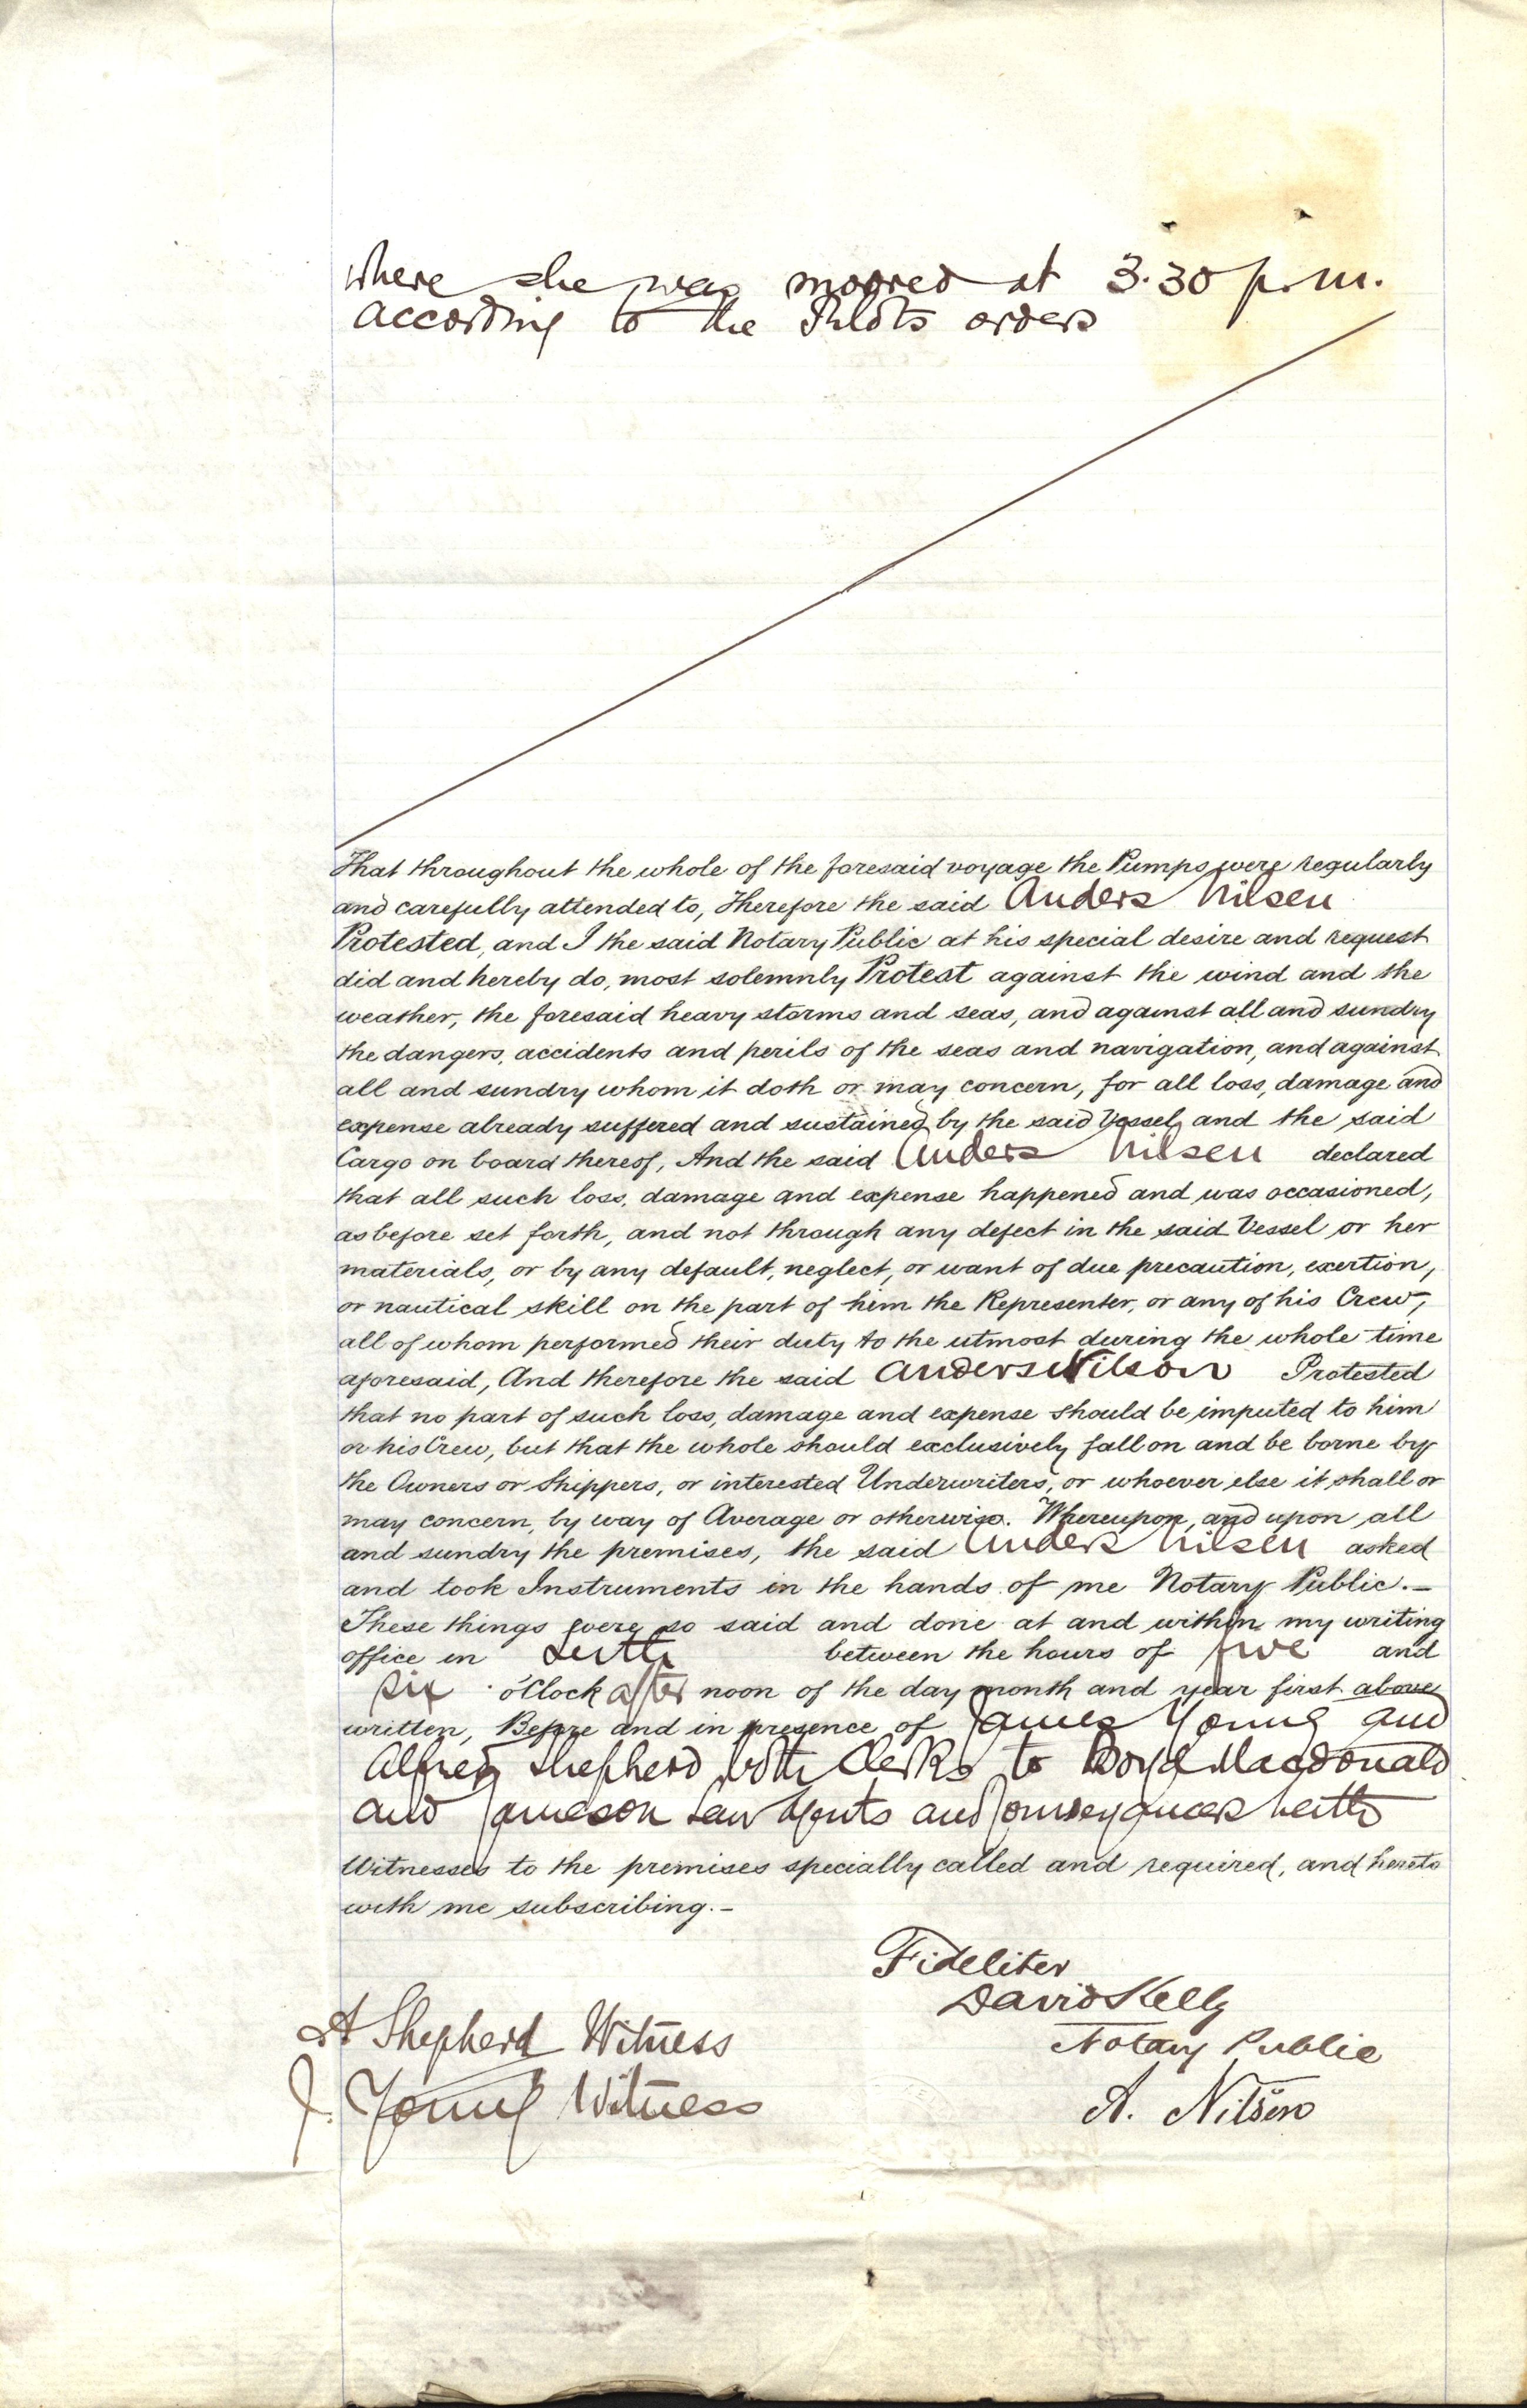 where she was moored at 3.30 p.m.
according to the Pilots orders
That throughout the whole of the foresaid voyage the Pumps were regularly
and carefully attended to, Therefore the said Anders Nilsen
Protested, and I the said Notary Public at his special desire and request
did and hereby do, most solemnly Protest against the wind and the
weather, the foresaid heavy storms and seas, and against all and sundry
the dangers, accidents and perils of the seas and navigation, and against
all and sundry whom it doth or may concern, for all loss, damage and
expense already suffered and sustained by the said Vessel, and the said
Cargo on board thereof, And the said Anders Nilsen declared
that all such loss, damage and expense happened and was occasioned,
as before set forth, and not through any defect in the said Vessel or her
materials, or by any default, neglect, or want of due precaution, exertion,
or nautical skill on the part of him the Representer, or any of his Crew,
all of whom performed their duty to the utmost during the whole time
aforesaid, And therefore the said Anders Nilson Protested
that no part of such loss, damage and expense should be imputed to him
or his Crew, but that the whole should exclusively fall on and be borne by
the Owners or Shippers, or interested Underwriters, or whoever else it shall or
may concern, by way of Average or otherwise. Whereupon, and upon all
and sundry the premises, the said Anders Nilsen asked
and took Instruments in the hands of me Notary Public.—
These things were so said and done at and within my writing
office in Leith between the hours of five and
six o'Clock after noon of the day month and year first above
written, Before and in presence of James Young and
Alfred Shepherd both Clerks to Boyd Macdonald
and Jameson Law Agents and Conveyancers Leith
Witnesses to the premises specially called and required, and hereto
with me subscribing.—
Fideliter
David Kelly
Notary Public
A Shepherd Witness
J. Young Witness
A. Nilsen